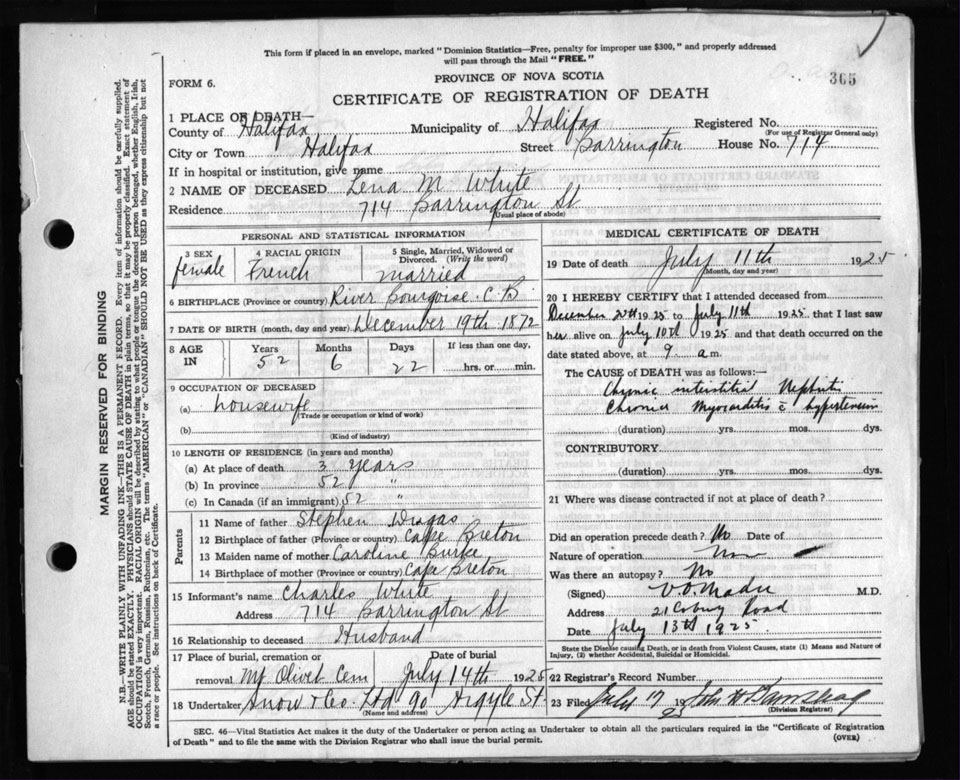 This form if placed in an envelope, marked "Dominion Statistics—Free, penalty for improper use $300," and properly addressed
will pass through the Mail "FREE."
365
FORM 6.
PROVINCE OF NOVA SCOTIA
CERTIFICATE OF REGISTRATION OF DEATH
1 PLACE OF DEATH—
County of Halifax Municipality of Halifax Registered No.
(For use of Registrar General only)
City or Town Halifax Street Barrington House No. 714
If in hospital or institution, give name
2 NAME OF DECEASED Lena M White
Residence 714 Barrington St
(Usual place of abode)
PERSONAL AND STATISTICAL INFORMATION
3 SEX 4 RACIAL ORIGIN 5 Single, Married, Widowed or Divorced. (Write the word)
female French married
6 BIRTHPLACE (Province or country) River Bourgoise C.B
7 DATE OF BIRTH (month, day and year) December 19th 1872
8 AGE IN Years Months Days If less than one day,
52 6 22 hrs. or min.
9 OCCUPATION OF DECEASED
(a) housewife
(Trade or occupation or kind of work)
(b)
(Kind of industry)
10 LENGTH OF RESIDENCE (in years and months)
(a) At place of death 3 years
(b) In province 52 "
(c) In Canada (if an immigrant) 52 "
Parents
11 Name of father Stephen
12 Birthplace of father (Province or country) Cape Breton
13 Maiden name of mother Caroline Burke
14 Birthplace of mother (Province or country) Cape Breton
15 Informant's name Charles White
Address 714 Barrington St
16 Relationship to deceased Husband
17 Place of burial, cremation or removal Date of burial
Mt Olivet Cem July 14th 1925
18 Undertaker Snow & Co. Ltd 90 Argyle St.
(Name and address)
MEDICAL CERTIFICATE OF DEATH
19 Date of death July 11th 1925
(Month, day and year)
20 I HEREBY CERTIFY that I attended deceased from
December 1925 to July 11th 1925 that I last saw
her alive on July 10th 1925 and that death occurred on the
date stated above, at 9 a.m.
The CAUSE of DEATH was as follows:—
Chronic interstitial Nephritis
Chronic Myocarditis c hypertension
(duration) yrs. mos. dys.
CONTRIBUTORY
(duration) yrs. mos. dys.
21 Where was disease contracted if not at place of death?
Did an operation precede death? No
Nature of operation
Was there an autopsy? No
(Signed) V.O. Mader M.D.
Address 21 Coburg Road
Date July 13th 1925.
State the Disease causing Death, or in death from Violent Causes, state (1) Means and Nature of
Injury, (2) whether Accidental, Suicidal or Homicidal.
22 Registrar's Record Number
23 Filed July 17 1925 John
(Division Registrar)
SEC. 46—Vital Statistics Act makes it the duty of the Undertaker or person acting as Undertaker to obtain all the particulars required in the "Certificate of Registration
of Death" and to file the same with the Division Registrar who shall issue the burial permit.
(OVER)
MARGIN RESERVED FOR BINDING
N.B.—WRITE PLAINLY WITH UNFADING INK—THIS IS A PERMANENT RECORD. Every item of information should be carefully supplied.
AGE should be stated EXACTLY. PHYSICIANS should STATE CAUSE OF DEATH in plain terms, so that it may be properly classified. Exact statement of
OCCUPATION is very important. RACIAL ORIGIN will be described by stating to what people or tongue the deceased person belonged, whether English, Irish,
Scotch, French, German, Russian, Ruthenian, etc. The terms "AMERICAN" or "CANADIAN" SHOULD NOT BE USED as they express citizenship but not
a race or people. See instructions on back of Certificate.